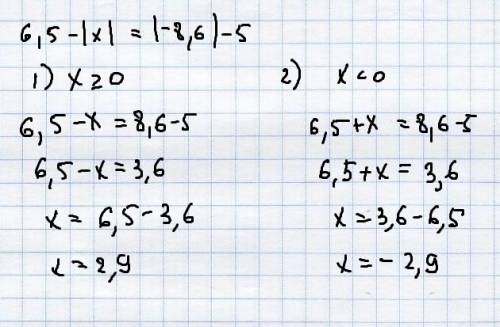 6,5-|x| = |-8,6|-5
1) x ≥ 0
6,5-x = 8,6-5
6,5-x = 3,6
x = 6,5-3,6
x = 2,9
2) x < 0
6,5+x = 8,6-5
6,5+x = 3,6
x = 3,6-6,5
x = -2,9